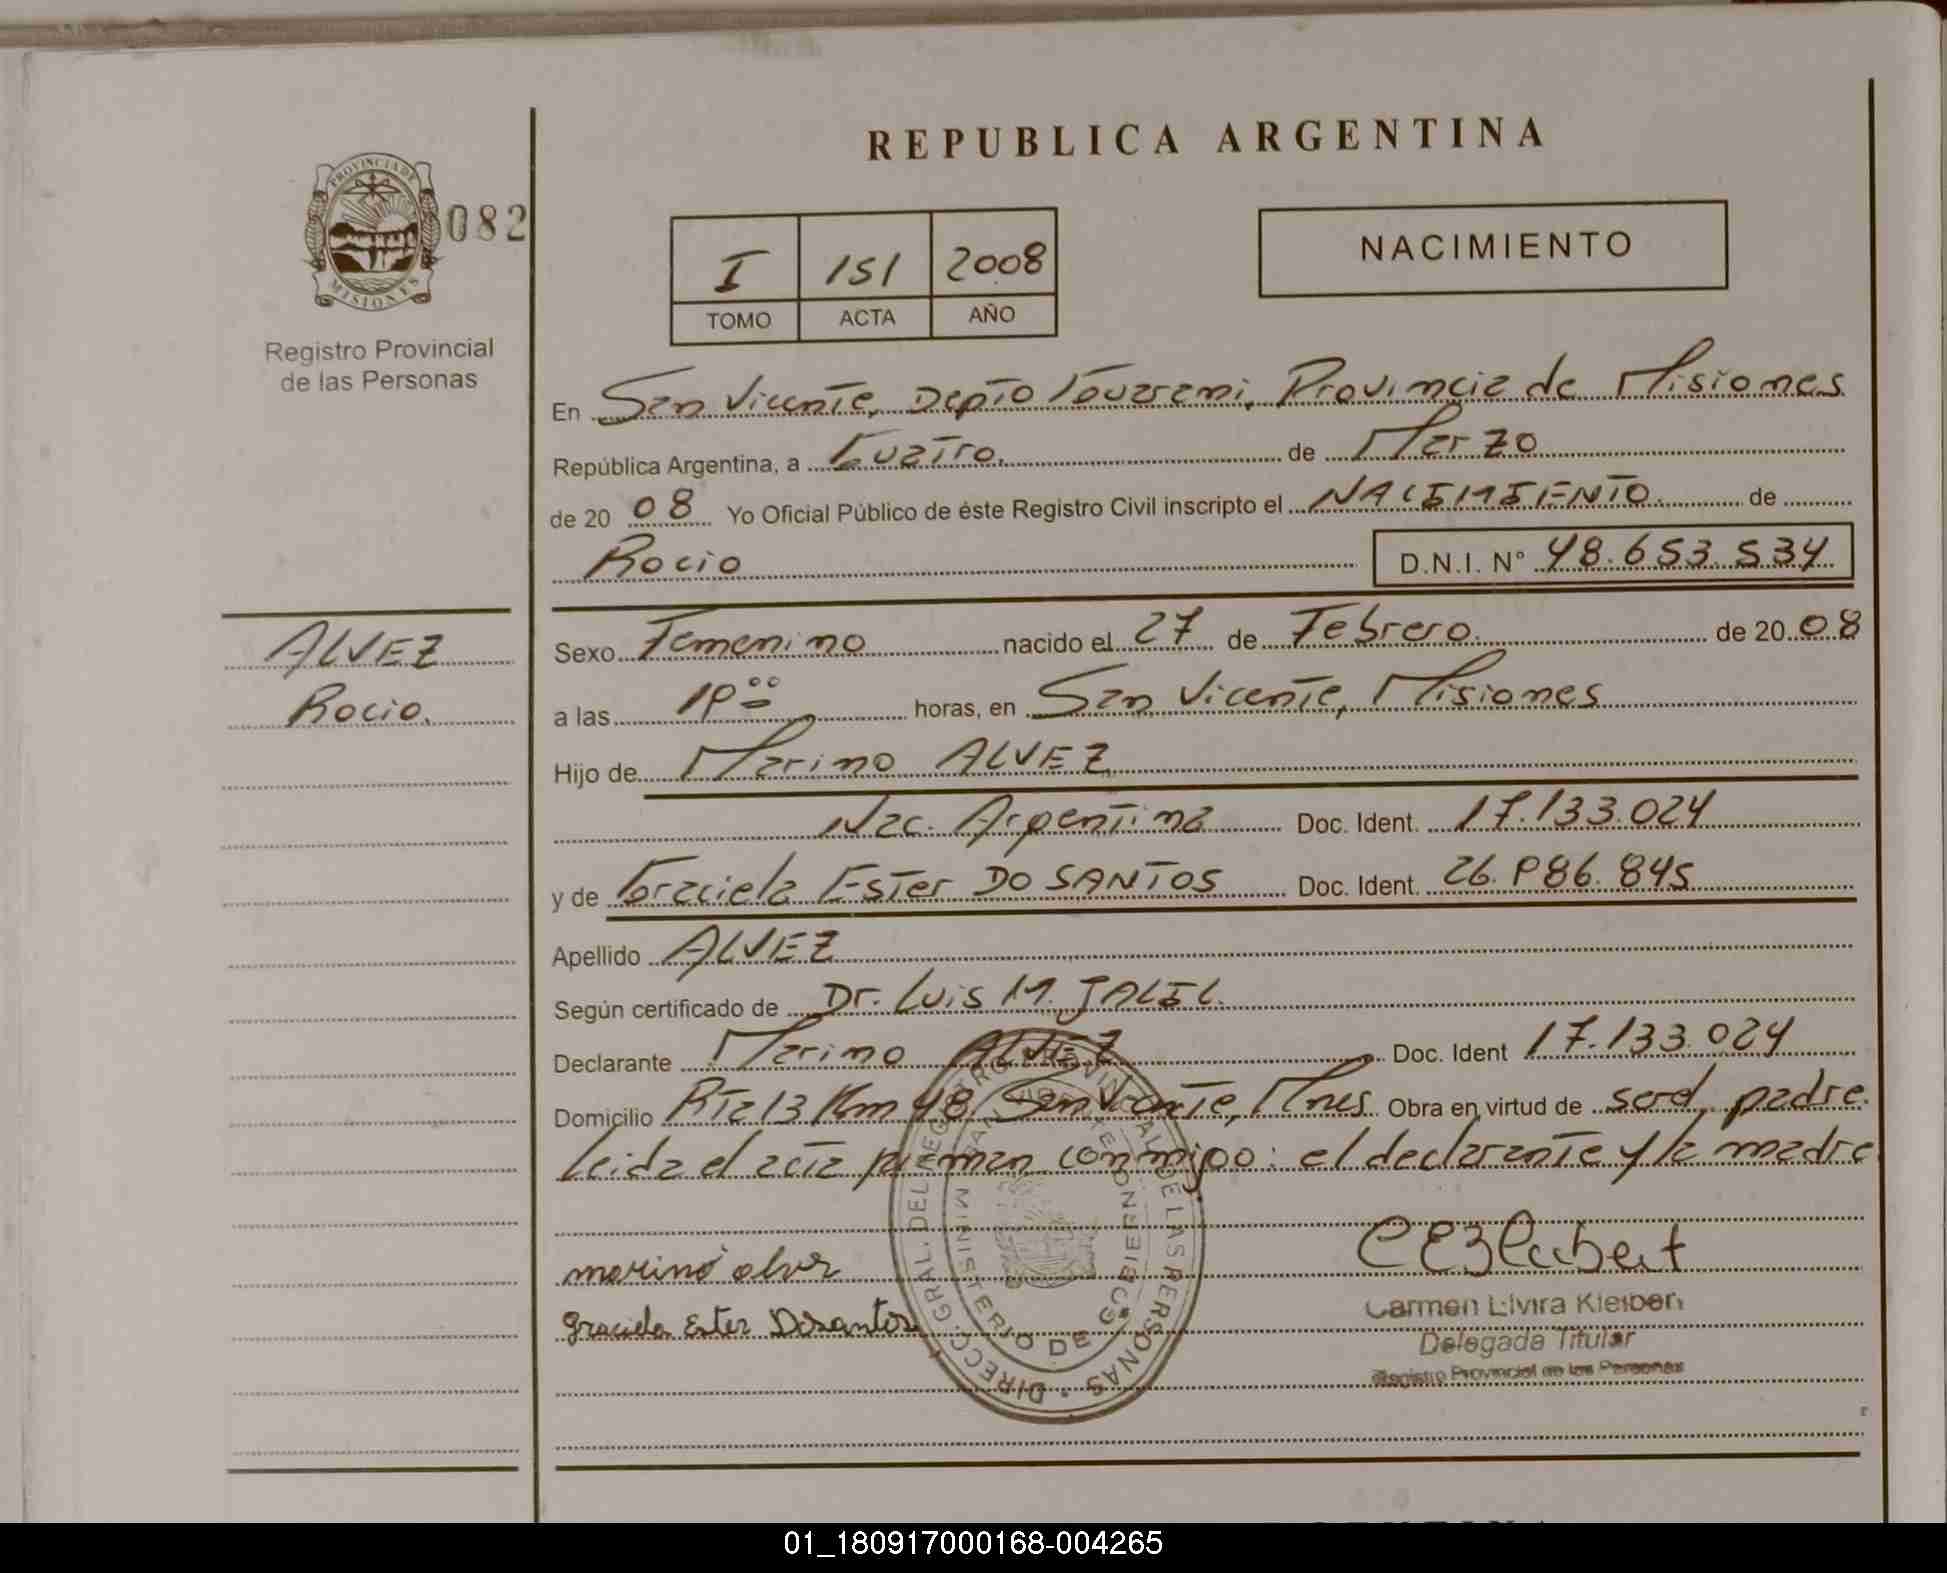 REPUBLICA ARGENTINA
PROVINCIA DE MISIONES
082
Registro Provincial
de las Personas
I 151 2008
TOMO ACTA AÑO
NACIMIENTO
En San Vicente, Depto Guarani, Provincia de Misiones
República Argentina, a Cuatro. de Marzo
de 20 08 Yo Oficial Público de éste Registro Civil inscripto el NACIMIENTO. de
Rocio D.N.I. Nº 48.653.534
ALVEZ
Rocio.
Sexo Femenino nacido el 27 de Febrero. de 20 08
a las 19 00 horas, en San Vicente, Misiones
Hijo de Marino ALVEZ
Nac. Argentina Doc. Ident. 17.133.024
y de Graciela Ester DO SANTOS Doc. Ident. 26.986.845
Apellido ALVEZ
Según certificado de Dr. Luis M. JALIL.
Declarante Marino ALVEZ Doc. Ident 17.133.024
Domicilio Rta 13 Km 48 San Vicente, Mnes Obra en virtud de ser el padre.
Leida el acta firman conmigo: el declarante y la madre
marino alvez
Graciela Ester Dosantos
Carmen Elvira Kleiber
Delegada Titular
Registro Provincial de las Personas
DIRECC. GRAL. DEL REGISTRO PROVINCIAL DE LAS PERSONAS
MINISTERIO DE GOBIERNO
01_180917000168-004265